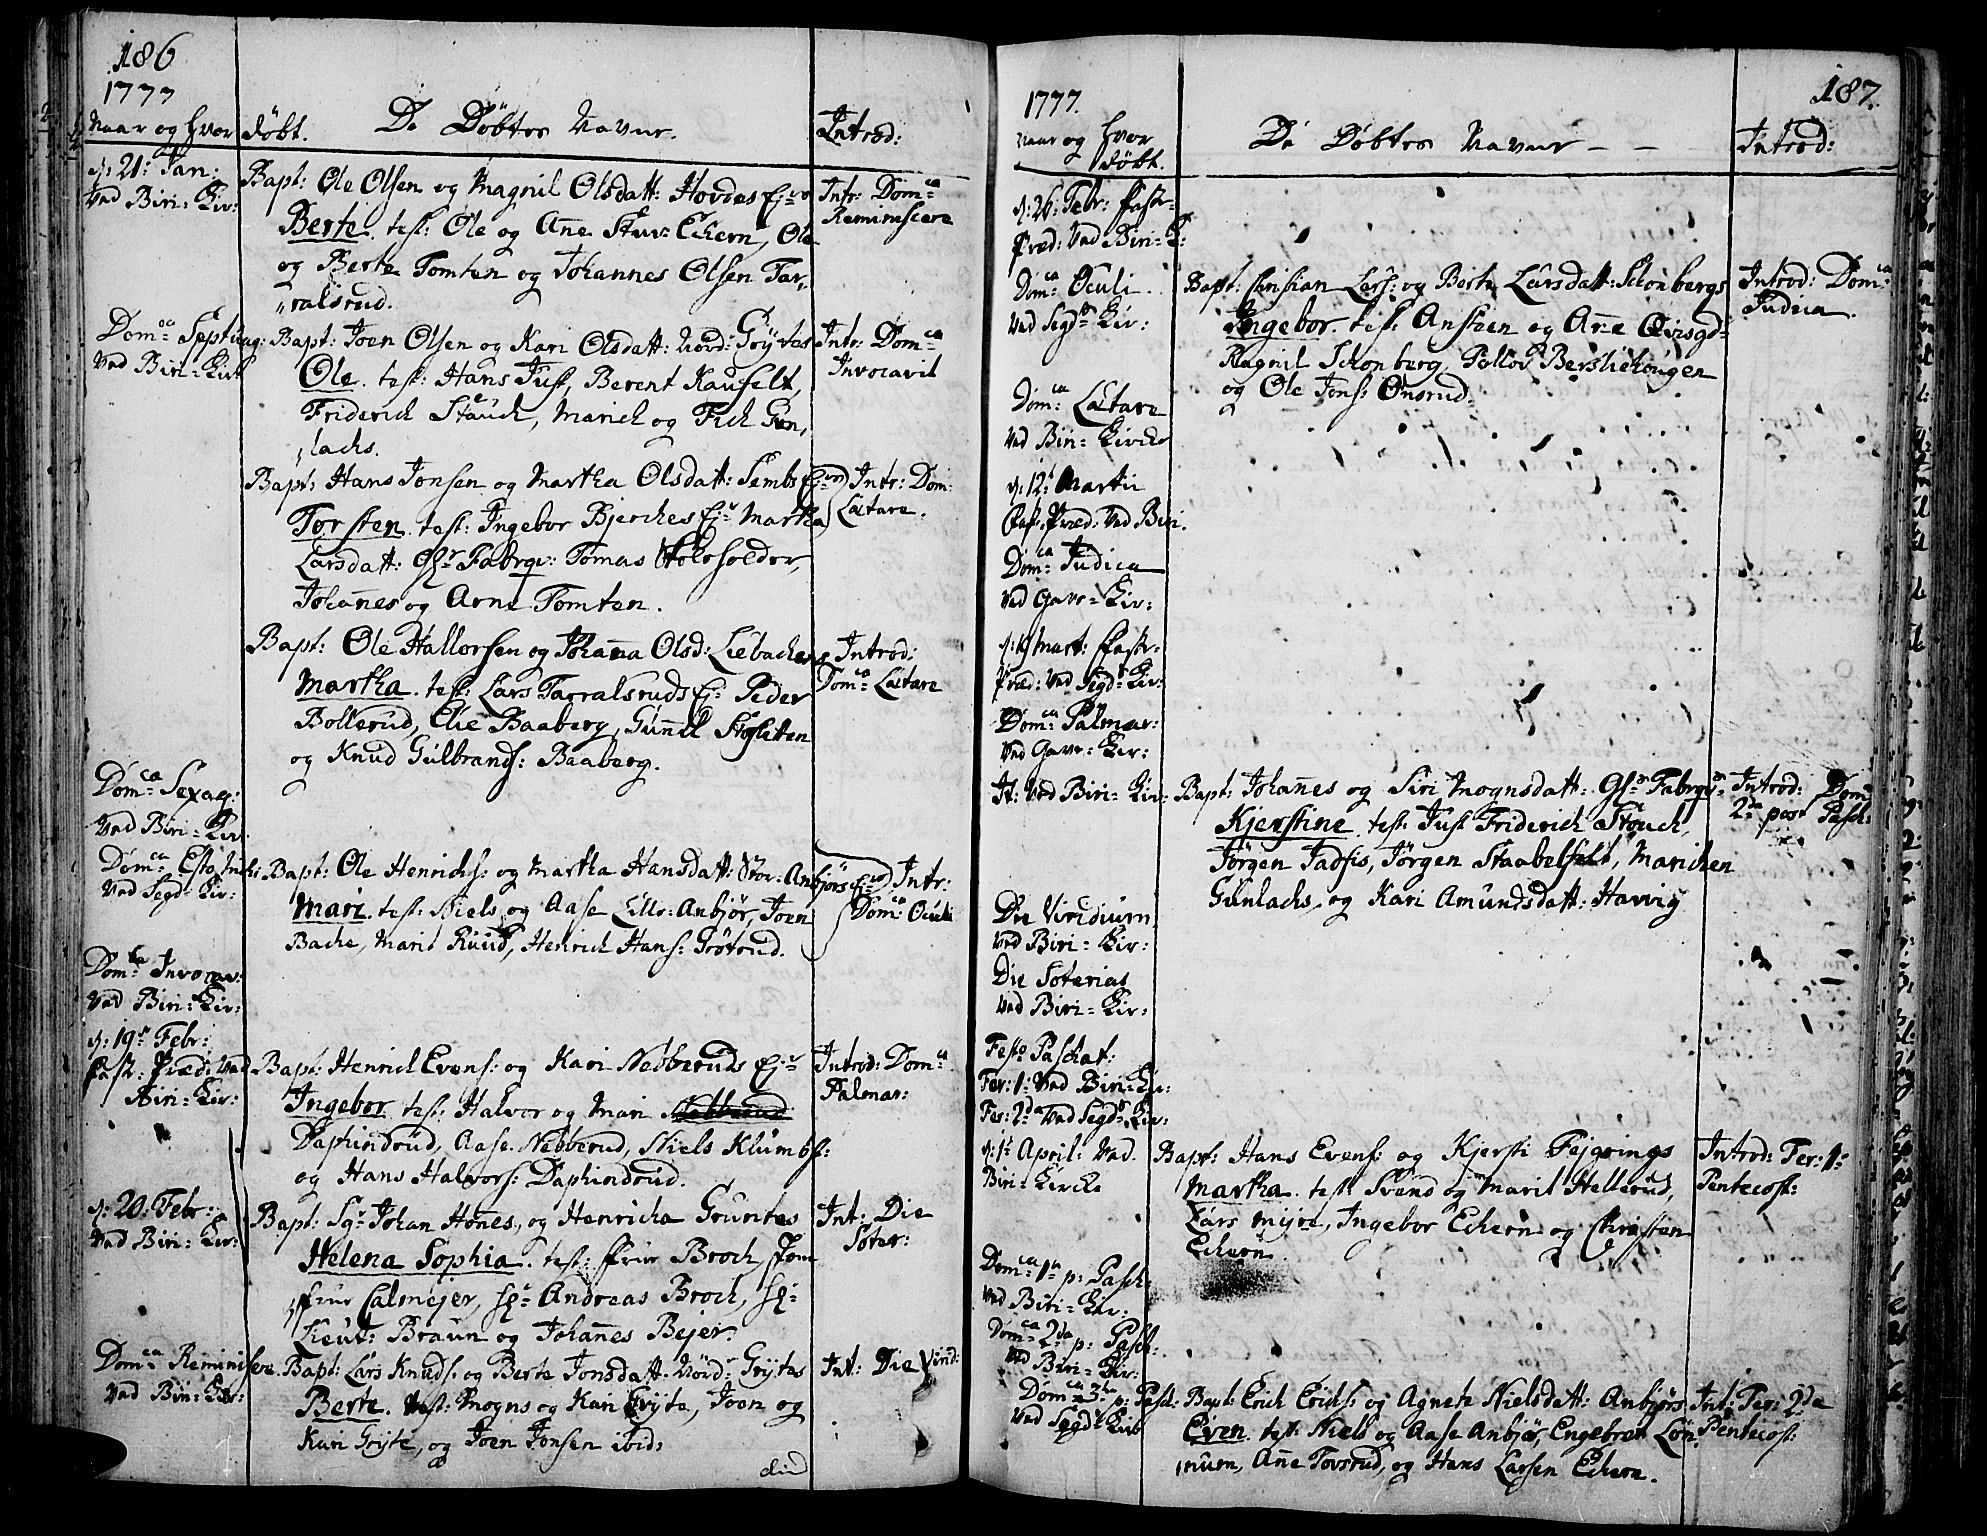 186
1777
Naar og hvor døbt. De Døbtes Navne. Introd:
d: 21: Jan:
Ved Biri-Kir:
Bapt: Ole Olsen og Magnil Olsdatt: Hovdes Ej:
Berte. test: Ole og Añe Stur: Echern, Ole
og Berte Tomten og Johannes Olsen Tar„
„ralsrud.
Intr: Dom:ca
Reminiscere
Dom:ca Septuag:
Ved Biri-Kirk
Bapt: Joen Olsen og Kari Olsdatt: Nord: Grýtes
Ole. test: Hans Just, Berent Kaufelt,
Friderich Stauch, Marich og Fich Gun„
„lachs.
Intr: Dom:ca
Invocavit
Bapt: Hans Jonsen og Martha Olsdatt: Sembs Ej:
Torsten. test: Ingebor Bjerches Ej: Martha
Larsdatt: Gl: Fabrqv: Tomas
Johañes og Arne Tomten.
Intr: Dom:
Lætare.
Bapt: Ole Hallorsen og Johaña Olsd: Liebachens
Martha. test: Lars Tarralsruds Ej: Peder
Bollerud, Elie Baaberg, Guñil Skoglien
og Knud Gulbrands: Baaberg.
Introd:
Dom:ca Lætare
Dom:ca Sexag:
Ved Biri-Kir:
Dom:ca Esto mihi
Ved Segd-Kir:
Bapt: Ole Henrichs: og Martha Hansdatt: Stor-Anbjørs Ej:
Mari. test: Niels og Aase Lille-Anbjør, Joen
Bache, Marit Ruud, Henrich Hans: Grøtrud.
Intr:
Dom:ca Oculi
Dom:ca Invocav:
Ved Biri-Kir:
d: 19: Febr:
Fast: Præd: Ved
Biri-Kir:
Bapt: Henrich Evens: og Kari Nebberuds Ej:
Ingebor test: Halvor og Mari Nebberud
Daphindrud, Aase Nebberud, Niels Klumb
og Hans Halvors: Daphindrud.
Introd: Dom:ca
Palmar:
d: 20: Febr:
Ved Biri-Kir:
Bapt: Sgr Johan Hones, og Henricha Gruntes
Helena Sophia. test: Frue Broch, Jom
fru Calmejer, Sr Andreas Broch, Sr
Lieut: Braun og Johañes Bejer.
Int: Die
Soter:
Dom:ca Reminiscere
Ved Biri-Kir:
Bapt: Lars Knuds: og Berte Jonsdatt: Nord: Grýtes
Berte. test: Mogns og Kari Grýte, Joen og
Kari Grýte, og Joen Jonsen ibid:
Int: Die Virid:
187.
1777.
Naar og hvor
døbt.
De Døbtes Navne - - Introd:
d: 26: Febr: Fast-
Præd: Ved Biri-K:
Dom:ca Oculi.
Ved Segd-Kir:
Bapt: Christian Lars: og Berte Larsdatt: Schonbergs
Ingebor. test: Ansteen og Añe Qvisgd-
Ragnil Schonberg, Pollov Bersliehougen
og Ole Jons: Onsrud.
Introd: Dom:ca
Judica.
Dom:ca Lætare
Ved Biri-Kirche
d: 12: Martii
Fast: Præd: Ved Biri.
Dom:ca Judica
Ved Gave-Kir:
d: 19 Mart: Fast-
Præd: Ved Segd-Kir:
Dom:ca Palmar:
Ved Gave-Kir:
It: Ved Biri-Kir:
Bapt: Johañes og Siri Mognsdatt: Gl: Fabrqv:
Kjerstine. test: Just Friderich Stouch,
Jørgen Tadsis, Jørgen Staabelfelt, Marichen
Gunlachs, og Kari Amundsdatt: Harvig
Introd: Dom:
2da post Pasch:
Die Viridium
Ved Biri-Kir:
Die Soterias
Ved Biri-Kir:
Festo Paschat:
Fer: 1: Ved Biri-Kir:
Fer: 2da Ved Segd-Kir:
d: 1: April: Ved
Biri-Kirche
Bapt: Hans Evens: og Kjersti Fejgrings
Martha. test: Svend og Marit Hellerud,
Lars Myre, Ingebor Echern og Christen
Echern.
Introd: Fer: 1:
Pentecost:
Dom:ca 1a p: Pasch:
Ved Biri-Kir:
Dom:ca 2da p: Pasch:
Ved Biri-Kir:
Dom:ca 3tia p: Pasch:
Ved Segd-Kirk
Bapt: Erich Erichs: og Agnete Nielsdatt: Anbjørs
Even. test: Niels og Aase Anbjør, Engebret Løn„
„num, Añe Tovsrud, og Hans Larsen Echern.
Int: Fer: 2da
Pentecost: